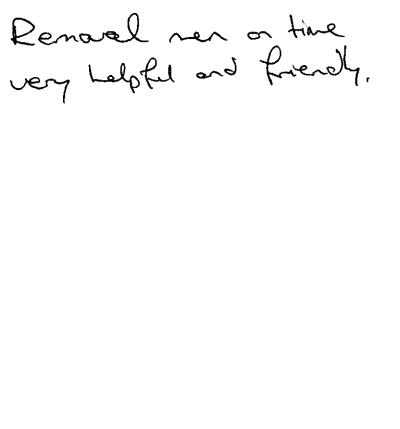 Removal men on time
very helpful and friendly.